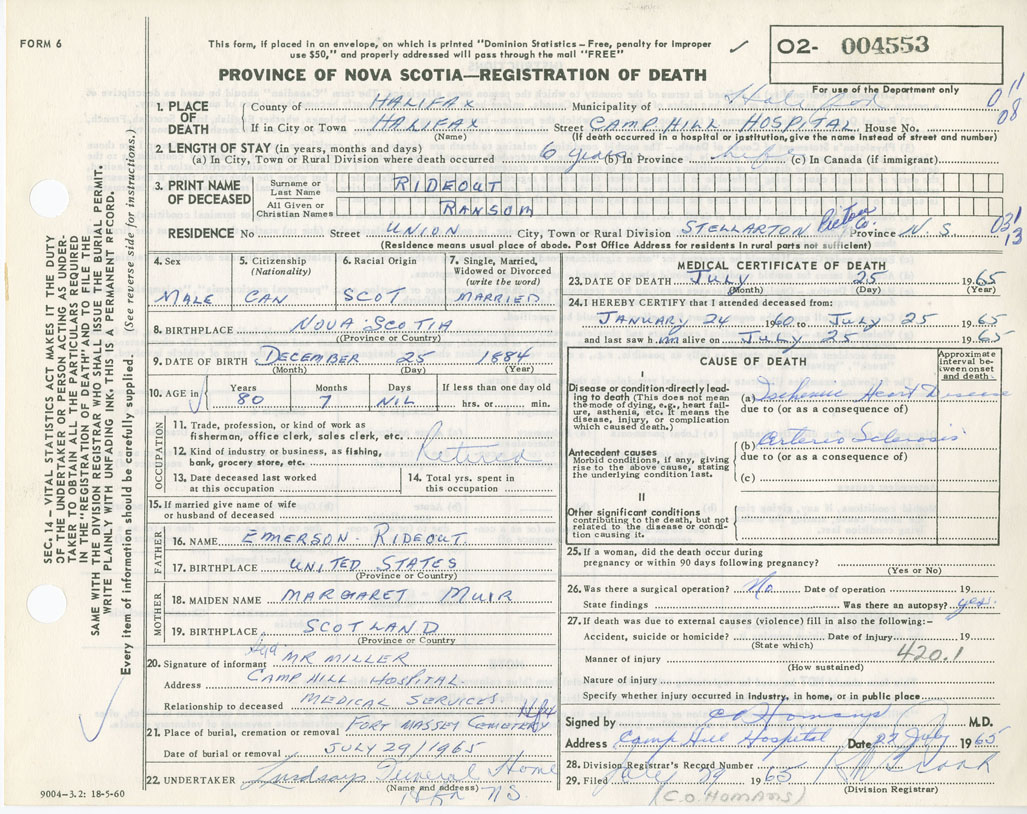 FORM 6
This form, if placed in an envelope, on which is printed "Dominion Statistics – Free, penalty for improper
use $50," and properly addressed will pass through the mail "FREE"
✓
O2- 004553
PROVINCE OF NOVA SCOTIA—REGISTRATION OF DEATH
For use of the Department only
1. PLACE OF DEATH
County of HALIFAX Municipality of
If in City or Town HALIFAX Street CAMP HILL HOSPITAL House No.
(Name) (If death occurred in a hospital or institution, give the name instead of street and number)
011
08
2. LENGTH OF STAY (in years, months and days)
(a) In City, Town or Rural Division where death occurred 6 years (b) in Province life (c) In Canada (if immigrant)
3. PRINT NAME OF DECEASED
Surname or Last Name RIDEOUT
All Given or Christian Names RANSOM
RESIDENCE No Street UNION City, Town or Rural Division STELLARTON Pictou Co Province N. S.
031
13
(Residence means usual place of abode. Post Office Address for residents in rural parts not sufficient)
4. Sex
MALE
5. Citizenship
(Nationality)
CAN
6. Racial Origin
SCOT
7. Single, Married,
Widowed or Divorced
(write the word)
MARRIED
8. BIRTHPLACE NOVA SCOTIA
(Province or Country)
9. DATE OF BIRTH DECEMBER 25 1884
(Month) (Day) (Year)
10. AGE in
Years Months Days If less than one day old
80 7 NIL hrs. or min.
OCCUPATION
11. Trade, profession, or kind of work as
fisherman, office clerk, sales clerk, etc.
12. Kind of industry or business, as fishing,
bank, grocery store, etc.
Retired
13. Date deceased last worked
at this occupation
14. Total yrs. spent in
this occupation
15. If married give name of wife
or husband of deceased
FATHER
16. NAME EMERSON RIDEOUT
17. BIRTHPLACE UNITED STATES
(Province or Country)
MOTHER
18. MAIDEN NAME MARGARET MUIR
19. BIRTHPLACE SCOTLAND
(Province or Country)
20. Signature of informant MR MILLER
Address CAMP HILL HOSPITAL
Relationship to deceased MEDICAL SERVICES
21. Place of burial, cremation or removal FORT MASSEY CEMETERY Hfx
Date of burial or removal JULY 29/1965
22. UNDERTAKER Lindsays Funeral Home
(Name and address)
Hfx NS.
9004-3.2: 18-5-60
MEDICAL CERTIFICATE OF DEATH
23. DATE OF DEATH JULY 25 1965
(Month) (Day) (Year)
24. I HEREBY CERTIFY that I attended deceased from:
JANUARY 24 1960 to JULY 25 1965
and last saw him alive on JULY 25 1965
CAUSE OF DEATH
Approximate
interval be-
tween onset
and death
I
Disease or condition directly lead-
ing to death (This does not mean
the mode of dying, e.g., heart fail-
ure, asthenia, etc. It means the
disease, injury, or complication
which caused death.)
(a) Ischemic Heart Disease
due to (or as a consequence of)
Antecedent causes
Morbid conditions, if any, giving
rise to the above cause, stating
the underlying condition last.
(b) Arterio Sclerosis
due to (or as a consequence of)
(c)
II
Other significant conditions
contributing to the death, but not
related to the disease or condi-
tion causing it.
25. If a woman, did the death occur during
pregnancy or within 90 days following pregnancy?
(Yes or No)
26. Was there a surgical operation? No Date of operation 19
State findings Was there an autopsy? yes
27. If death was due to external causes (violence) fill in also the following:–
Accident, suicide or homicide? Date of injury 19
(State which)
Manner of injury 420.1
(How sustained)
Nature of injury
Specify whether injury occurred in industry, in home, or in public place
Signed by C O Homans M.D.
Address Camp Hill Hospital Date 27 July 1965
28. Division Registrar's Record Number
29. Filed July 29 1965
(Division Registrar)
(C.O. HOMANS)
SEC. 14 – VITAL STATISTICS ACT MAKES IT THE DUTY
OF THE UNDERTAKER OR PERSON ACTING AS UNDER-
TAKER TO OBTAIN ALL THE PARTICULARS REQUIRED
IN THE "REGISTRATION OF DEATH" AND TO FILE THE
SAME WITH THE DIVISION REGISTRAR WHO SHALL ISSUE THE BURIAL PERMIT.
WRITE PLAINLY WITH UNFADING INK. THIS IS A PERMANENT RECORD.
Every item of information should be carefully supplied. (See reverse side for instructions.)